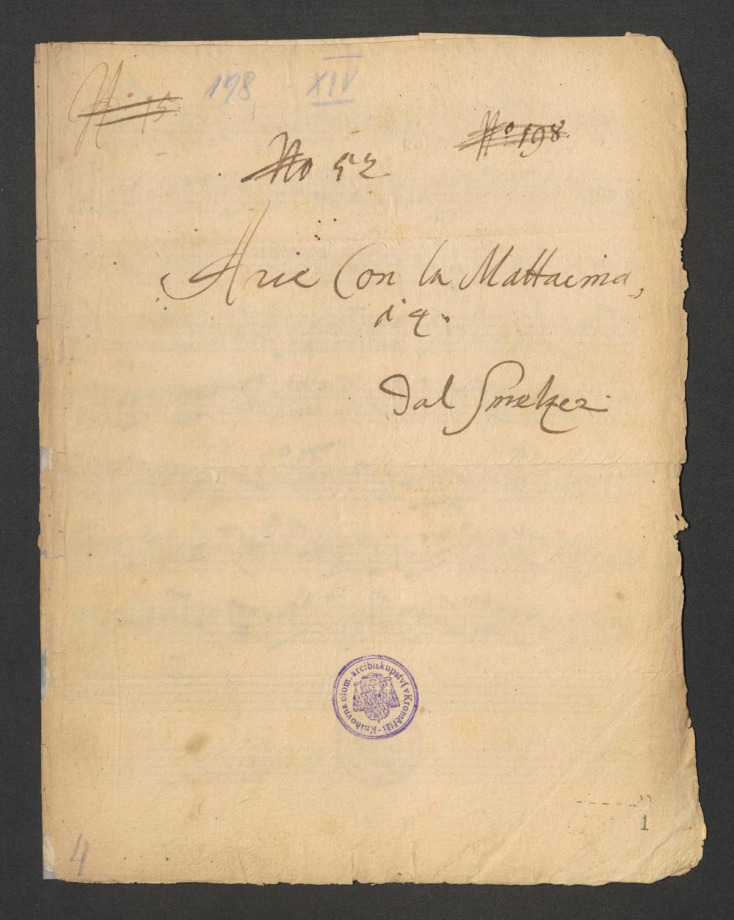 No 75
198
XIV
No 198.
No 52
Arie Con la Mattacina,
à 4.
Dal Smelzer
Knihovna olom. arcibiskupství v Kroměříži
1
4